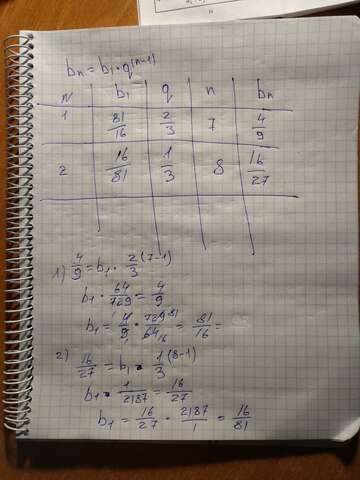 bn = b1 · q(n-1)
N b1 q n bn
1 81/16 2/3 7 4/9
2 16/81 1/3 8 16/27
1) 4/9 = b1 · 2/3 (7-1)
b1 · 64/729 = 4/9
b1 = 4/9 · 729 81/64 16 = 81/16 =
2) 16/27 = b1 · 1/3 (8-1)
b1 · 1/2187 = 16/27
b1 = 16/27 · 2187/1 = 16/81